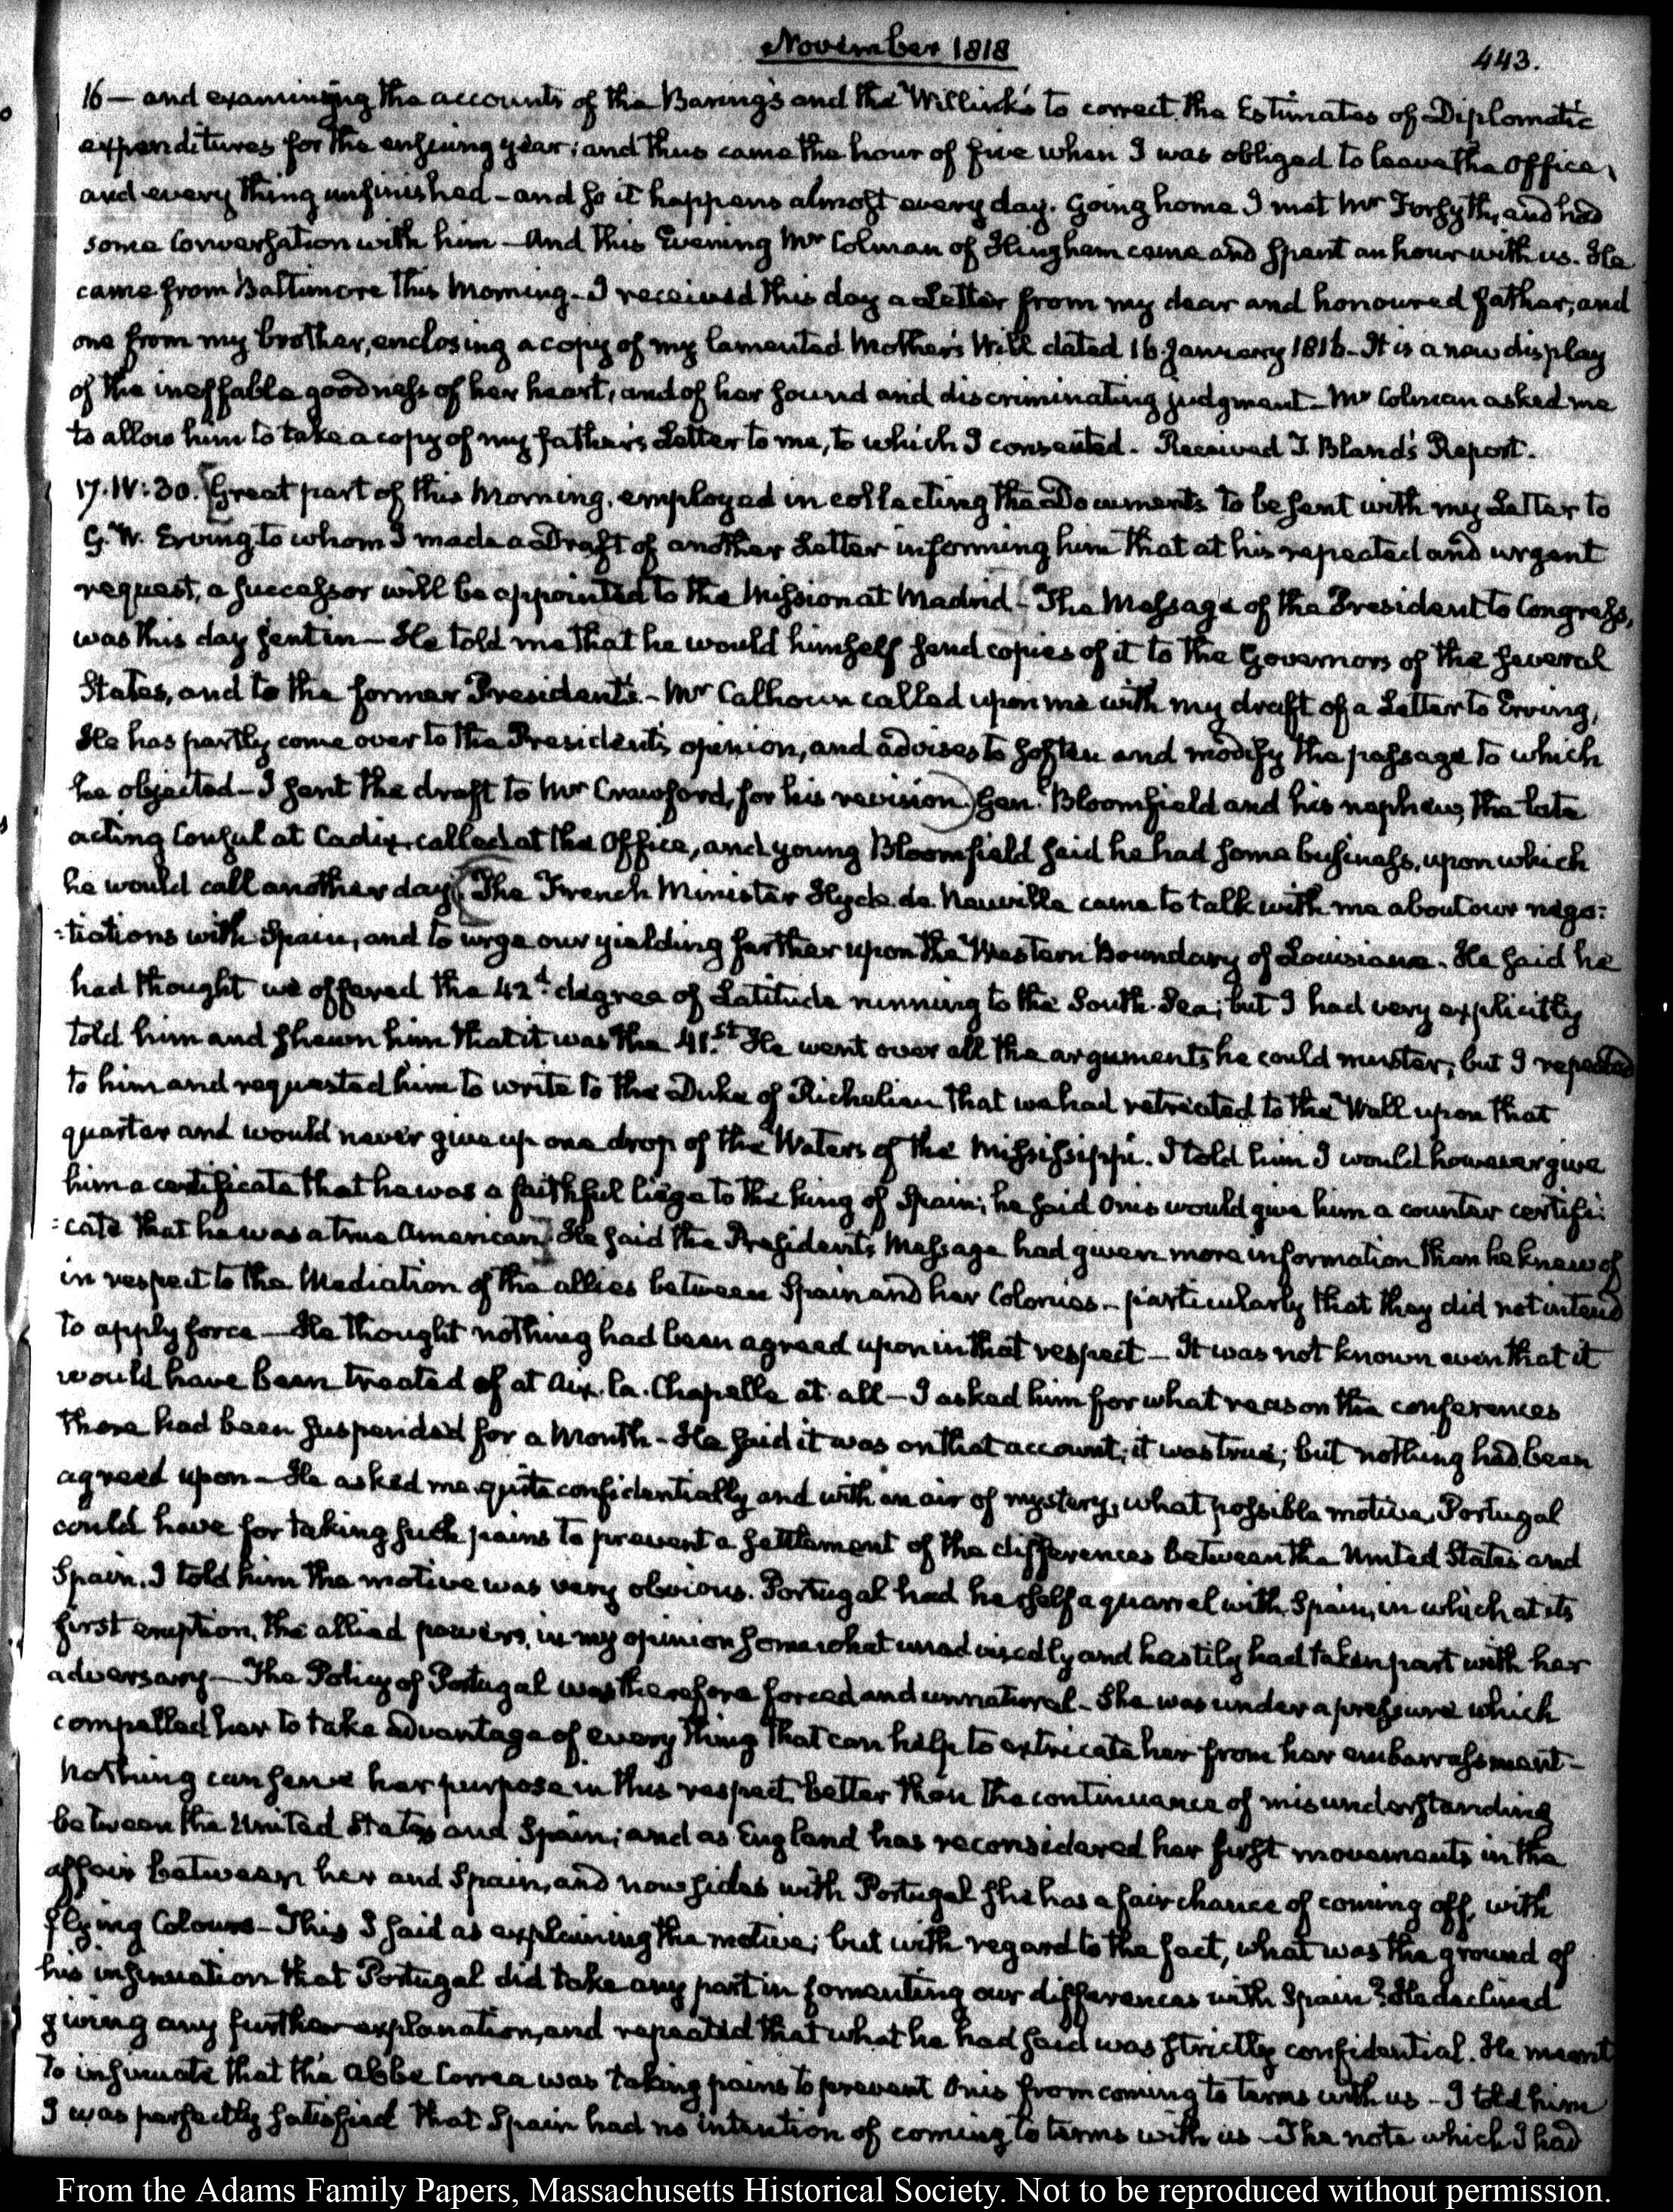 November 1818
443.
16 — and examining the accounts of the Barings and the Willink's to correct the Estimates of Diplomatic
expenditures for the ensuing year; and thus came the hour of five when I was obliged to leave the Office,
and every thing unfinished — and so it happens almost every day. Going home I met Mr Forsyth, and had
some Conversation with him — And this Evening Mr Colman of Hingham came and spent an hour with us. He
came from Baltimore this Morning — I received this day a Letter from my dear and honoured father, and
one from my brother, enclosing a copy of my lamented Mother's Will dated 16 January 1816 — It is a new display
of the ineffable goodness of her heart, and of her sound and discriminating judgment — Mr Colman asked me
to allow him to take a copy of my father's Letter to me, to which I consented. Received T. Bland's Report.
17. IV:30. [Great part of this Morning, employed in collecting the Documents to be sent with my Letter to
G. W. Erving to whom I made a Draft of another Letter informing him that at his repeated and urgent
request, a successor will be appointed to the Mission at Madrid — The Message of the President to Congress,
was this day sent in — He told me that he would himself send copies of it to the Governors of the several
States, and to the former Presidents. — Mr Calhoun called upon me with my draft of a Letter to Erving,
He has partly come over to the President's opinion, and advises to soften and modify the passage to which
he objected — I sent the draft to Mr Crawford, for his revision) Genl. Bloomfield and his nephew, the late
acting Consul at Cadiz called at the Office, and young Bloomfield said he had some business, upon which
he would call another day. [The French Minister Hyde de Neuville came to talk with me about our nego:
:tiations with Spain, and to urge our yielding further upon the Western Boundary of Louisiana. He said he
had thought we offered the 42d. degree of Latitude running to the South Sea; but I had very explicitly
told him and shewn him that it was the 41.st He went over all the arguments he could muster, but I repeated
to him and requested him to write to the Duke of Richelieu that we had retreated to the Wall upon that
quarter and would never give up one drop of the Waters of the Mississippi. I told him I would however give
him a certificate that he was a faithful liege to the king of Spain; he said Onis would give him a counter certifi:
:cate that he was a true American] He said the President's Message had given more information than he knew of
in respect to the Mediation of the allies between Spain and her Colonies — particularly that they did not intend
to apply force — He thought nothing had been agreed upon in that respect — It was not known even that it
would have been treated of at Aix. la. Chapelle at all — I asked him for what reason the conferences
there had been suspended for a Month — He said it was on that account, it was true; but nothing had been
agreed upon — He asked me quite confidentially and with an air of mystery, what possible motive, Portugal
could have for taking such pains to prevent a settlement of the differences between the United States and
Spain. I told him the motive was very obvious. Portugal had herself a quarrel with Spain, in which at its
first eruption, the allied powers, in my opinion somewhat unadvisedly and hastily had taken part with her
adversary — The Policy of Portugal was therefore forced and unnatural — She was under a pressure which
compelled her to take advantage of every thing that can help to extricate her from her embarrassment —
Nothing can serve her purpose in this respect better than the continuance of misunderstanding
between the United States and Spain; and as England has reconsidered her first movements in the
affair between her and Spain, and now sides with Portugal she has a fair chance of coming off, with
flying Colours — This I said as explaining the motive; but with regard to the fact, what was the ground of
his insinuation that Portugal did take any part in fomenting our differences with Spain? He declined
giving any further explanation, and repeated that what he had said was strictly confidential. He meant
to insinuate that the Abbe Correa was taking pains to prevent Onis from coming to terms with us — I told him
I was perfectly satisfied that Spain had no intention of coming to terms with us — The note which I had
From the Adams Family Papers, Massachusetts Historical Society. Not to be reproduced without permission.